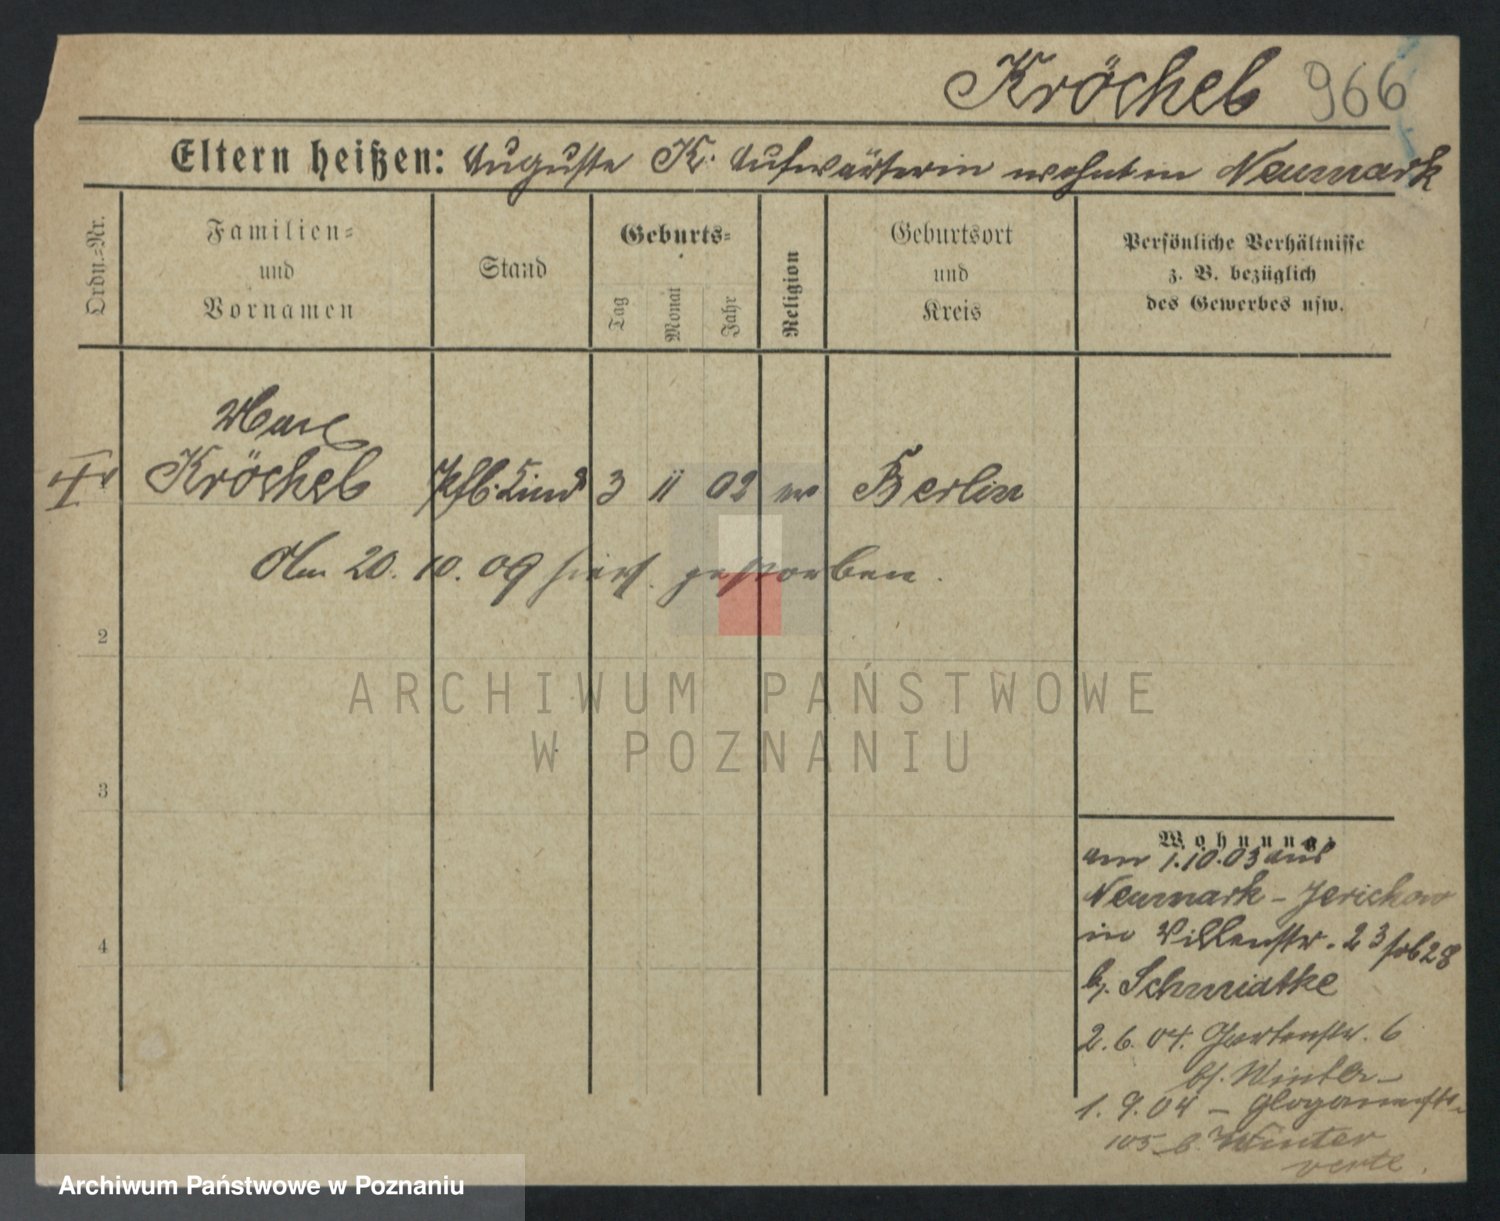 Kröcheb 966
Eltern heißen: Auguste K. Aufwärterin wohnt in Neumark
Ordn.-Nr.
Familien-
und
Vornamen
Stand
Geburts-
Tag
Monat
Jahr
Religion
Geburtsort
und
Kreis
Persönliche Verhältnisse
z. B. bezüglich
des Gewerbes usw.
Max
Kröcheb Pfl. Kind 3 11 02 Berlin
Am 20. 10. 09 hiers. gestorben.
2
3
4
Wohnung:
am 1.10.03 aus
Neumark - Jerichow
in Villenstr. 23 28
b. Schmidtke
2.6.04. Gartenstr. 6
bf. Winter
1.9.04 - Glogauerstr.
105 b. Winter
verte.
ARCHIWUM PAŃSTWOWE
W POZNANIU
Archiwum Państwowe w Poznaniu